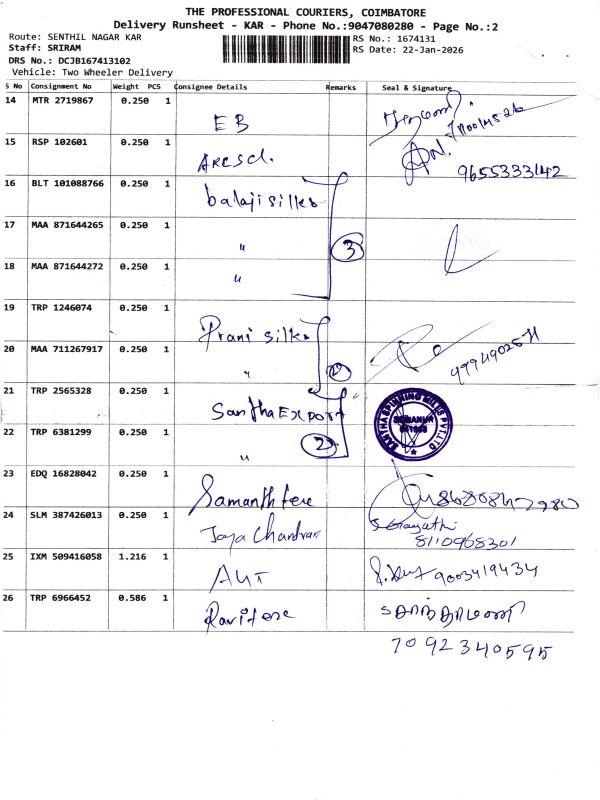 THE PROFESSIONAL COURIERS, COIMBATORE
Delivery Runsheet - KAR - Phone No.:9047080280 - Page No.:2
Route: SENTHIL NAGAR KAR
RS No.: 1674131
Staff: SRIRAM
RS Date: 22-Jan-2026
DRS No.: DCJB167413102
Vehicle: Two Wheeler Delivery
S No Consignment No Weight PCS Consignee Details Remarks Seal & Signature
14 MTR 2719867 0.250 1 EB
15 RSP 102601 0.250 1
9655333142
16 BLT 101088766 0.250 1 balaji silks
17 MAA 871644265 0.250 1 " 3
18 MAA 871644272 0.250 1 "
19 TRP 1246074 0.250 1 Prani silks
20 MAA 711267917 0.250 1 "
21 TRP 2565328 0.250 1 Santha Export
22 TRP 6381299 0.250 1 " 2
23 EDQ 16828042 0.250 1
24 SLM 387426013 0.250 1 Jaya Chandran
8110968301
25 IXM 509416058 1.216 1 9003419434
26 TRP 6966452 0.586 1 சாந்தாமணி
7092340595